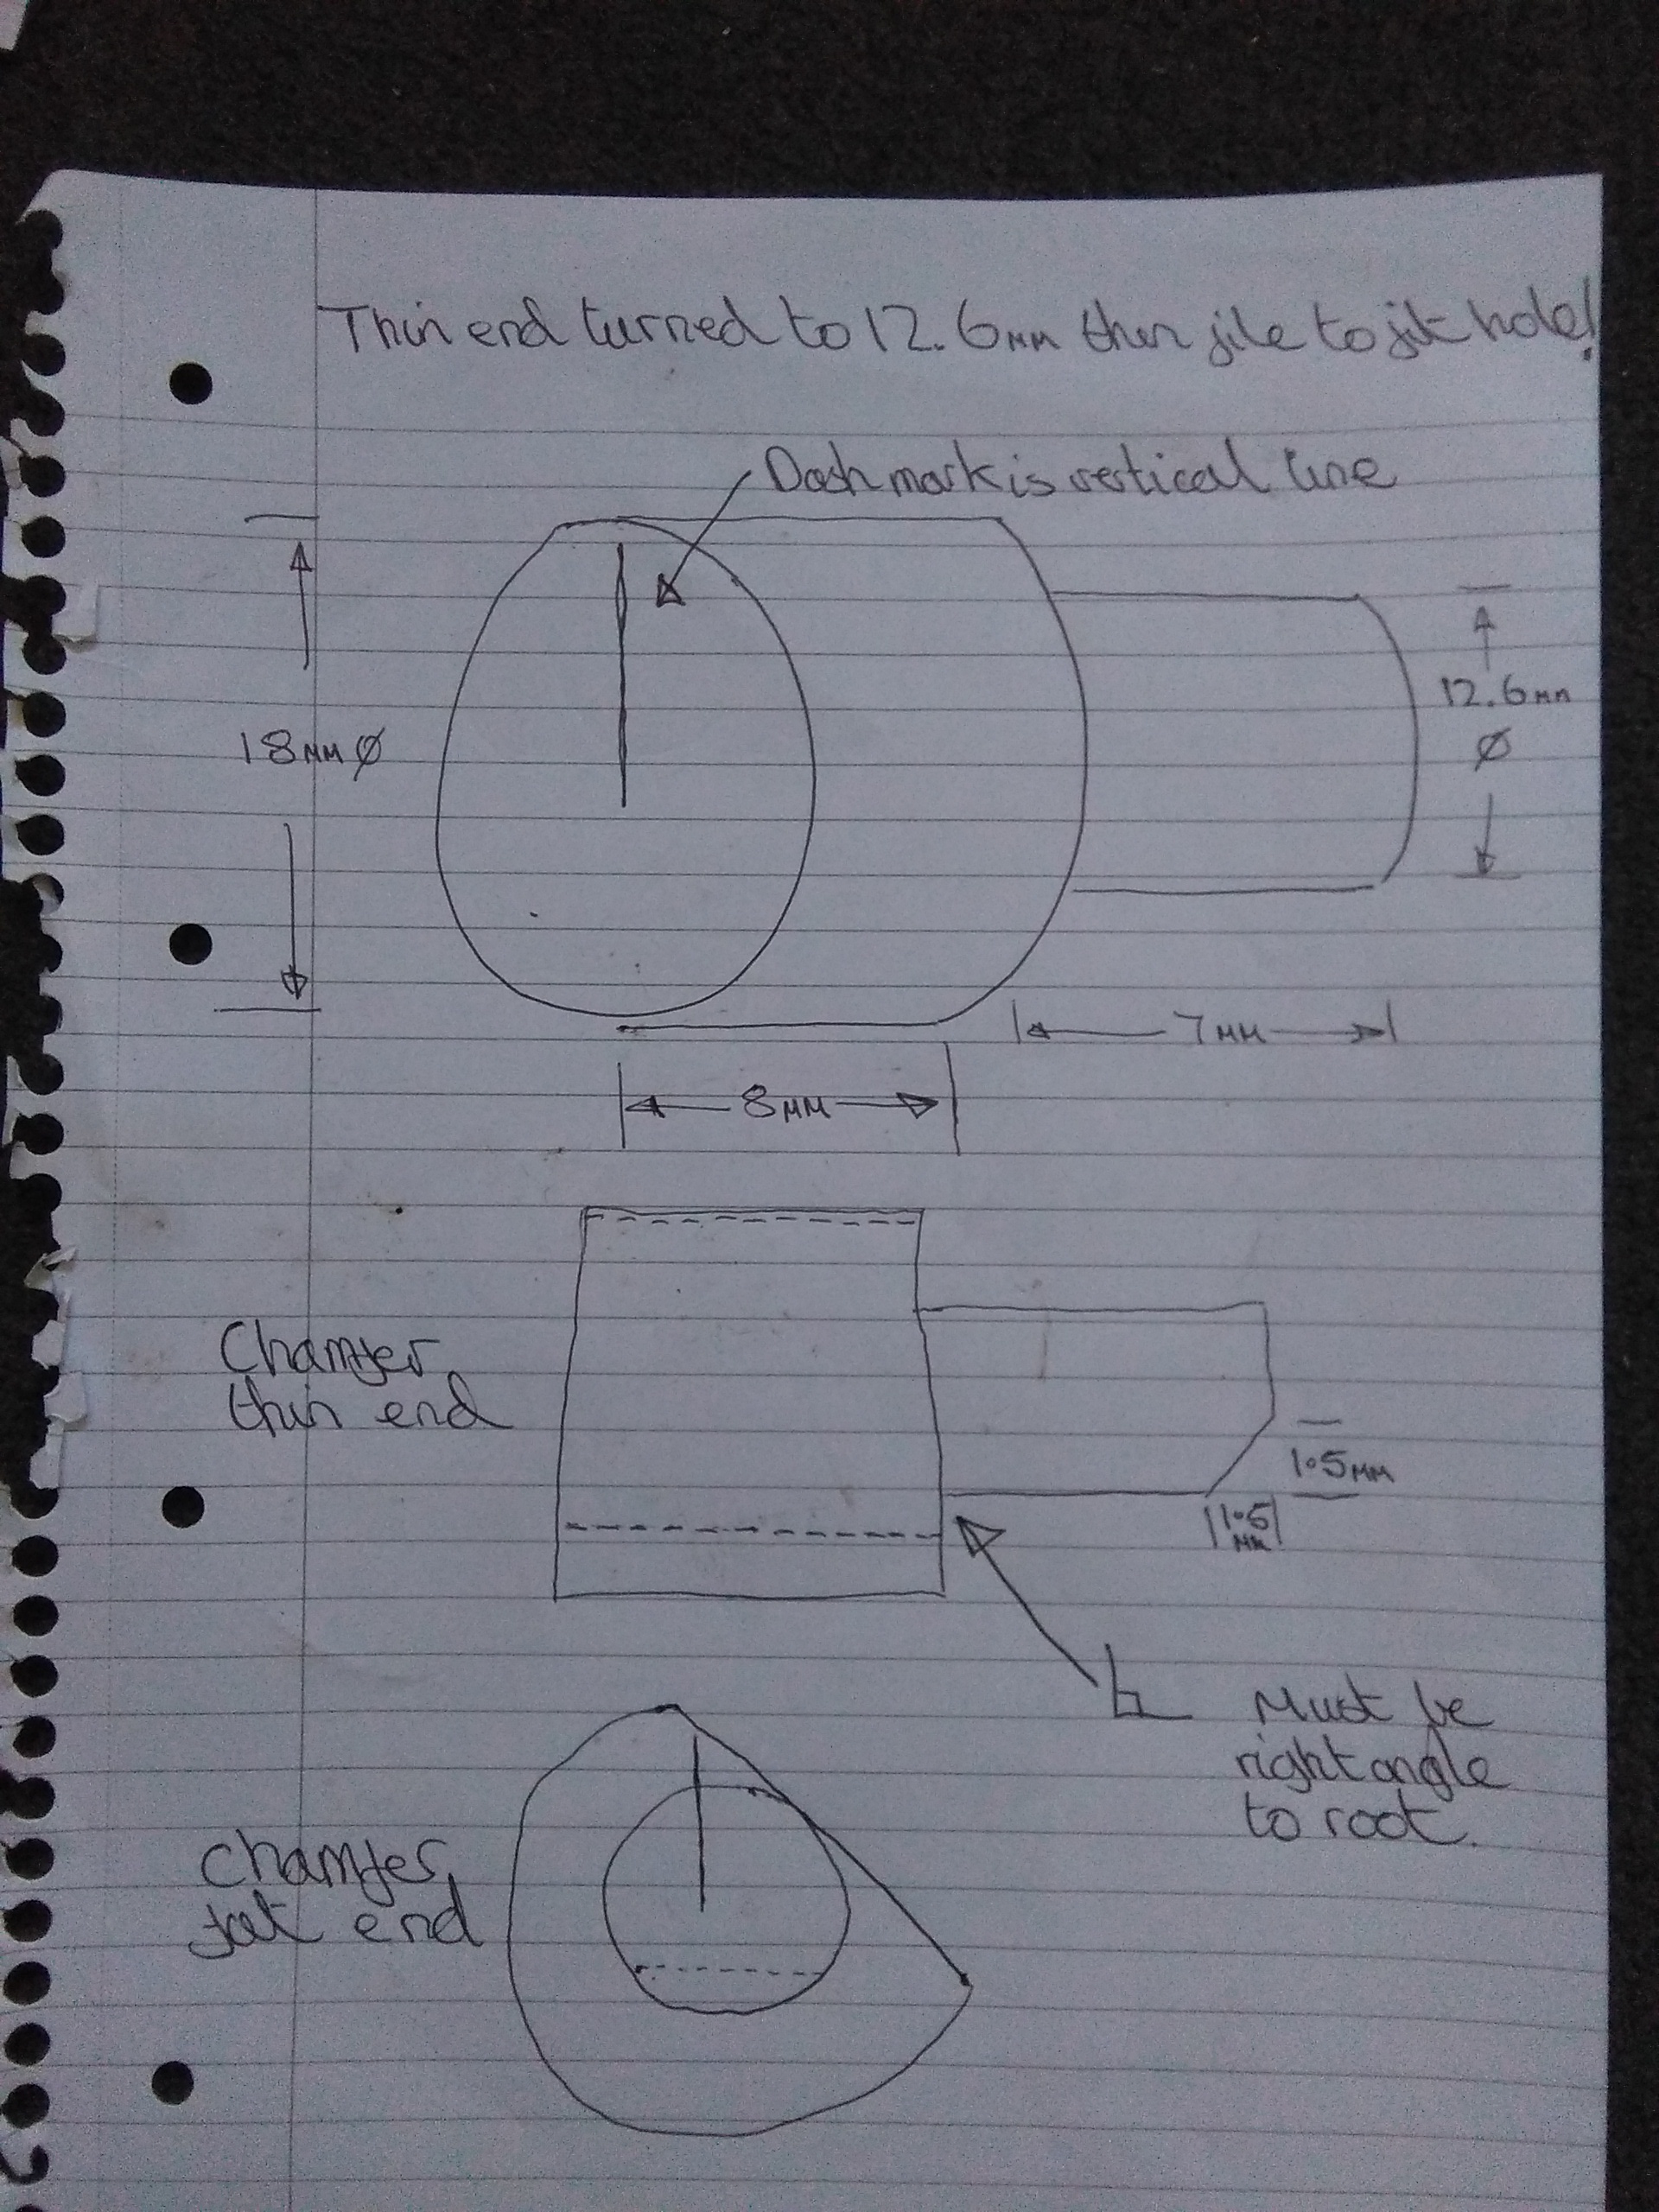 Thin end turned to 12.6mm then file to fit hole!
Dash mark is vertical line
18mm Ø
12.6mm
Ø
7mm
8mm
Chamfer
thin end
1.5mm
1.5
mm
Must be
right angle
to root.
Chamfer
fat end